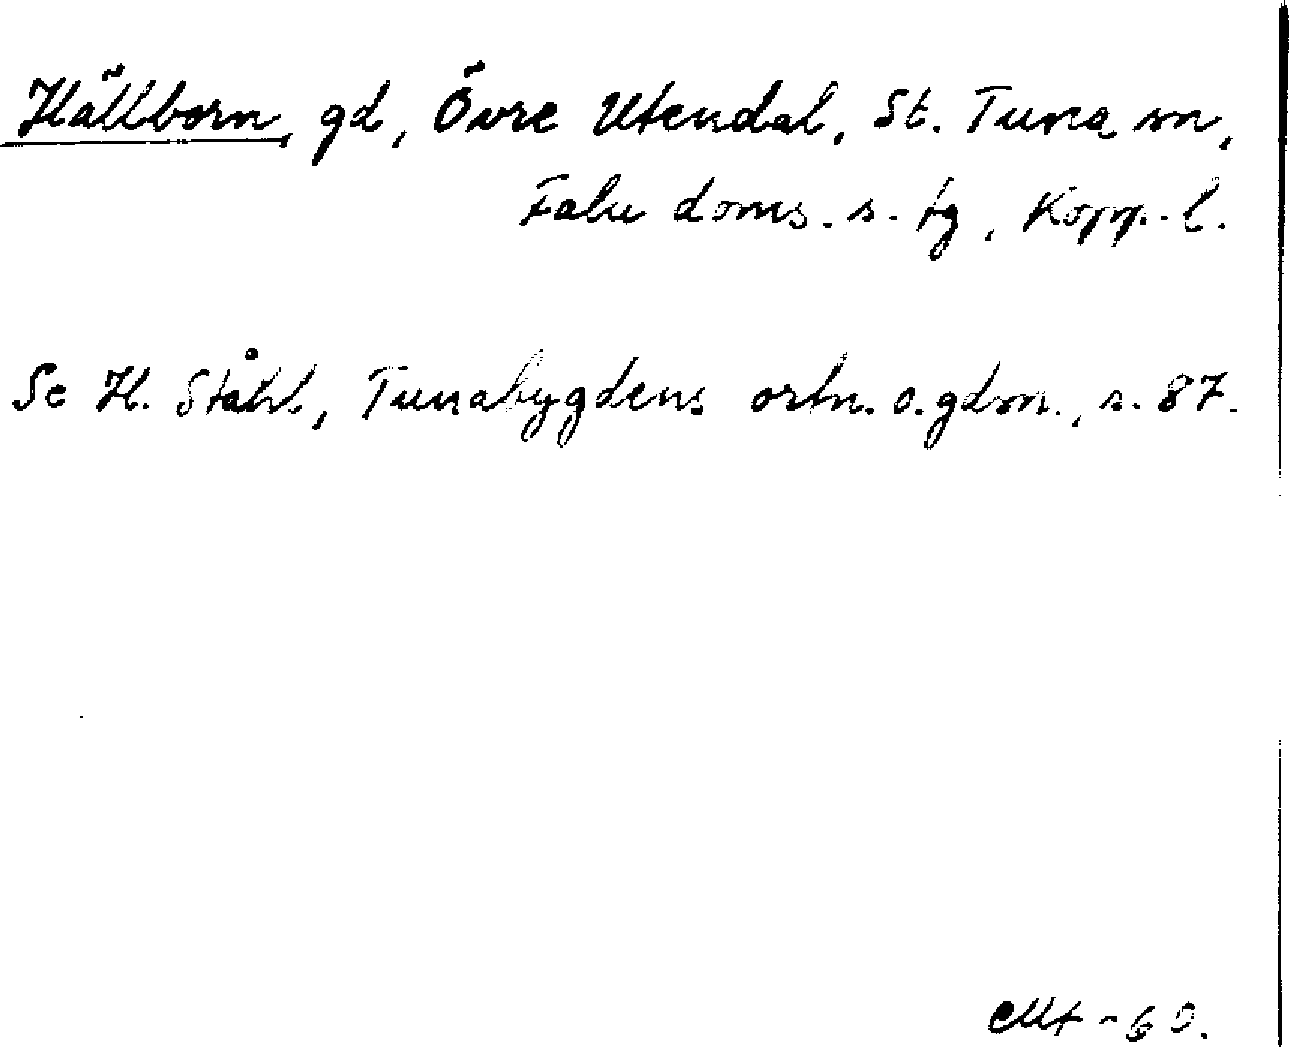 Hällborn, gd, Övre Utendal, St. Tuna sn,
Falu doms. s. tg, Kopp. l.
Se H. Ståhl, Tunabygdens ortn. o. gdsn., s. 87.
-60.